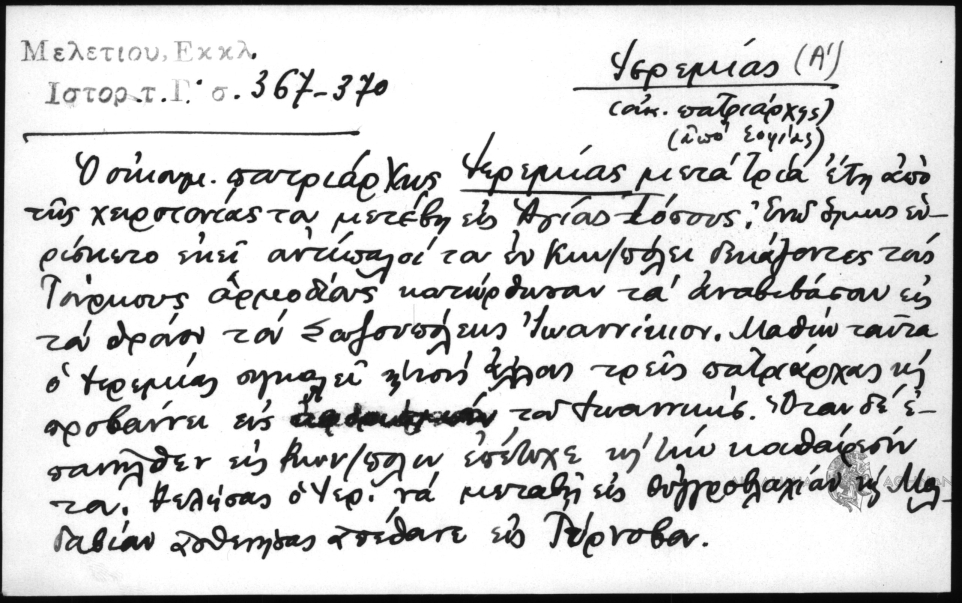 Μελετιου, Εκκλ.
Ιστορ. τ. Γ' σ. 367-370
Ἱερεμίας (Α')
(οἰκ. πατριάρχης)
(ἀπό Σοφίας)
Ὁ οἰκουμ. πατριάρχης Ἱερεμίας μετά τρία ἔτη ἀπό
τῆς χειροτονίας του μετέβη εἰς Ἁγίους Τόπους. Ἐνῷ ὅμως εὑ-
ρίσκετο ἐκεῖ ἀντίπαλοί του ἐν Κων/πόλει δεκάζοντες τούς
Τούρκους ἁρμοδίους κατώρθωσαν τά ἀναβιβάσουν εἰς
τόν θρόνον τόν Σωζοπόλεως Ἰωαννίκιον. Μαθών ταῦτα
ὁ Ἱερεμίας συγκαλεῖ τούς ἄλλους τρεῖς πατριάρχας κή
προβαίνει εἰς τοῦ Ἰωαννικίου. Ὅταν δέ ἐ-
πανῆλθεν εἰς Κων/πολιν ἐπέτυχε κή τήν καθαίρεσίν
του. Θελήσας ὁ Ἱερ. νά μεταβῇ εἰς Οὑγγροβλαχίαν κή Μολ-
δαβίαν ἀσθενήσας ἀπέθανε εἰς Τύρνοβον.